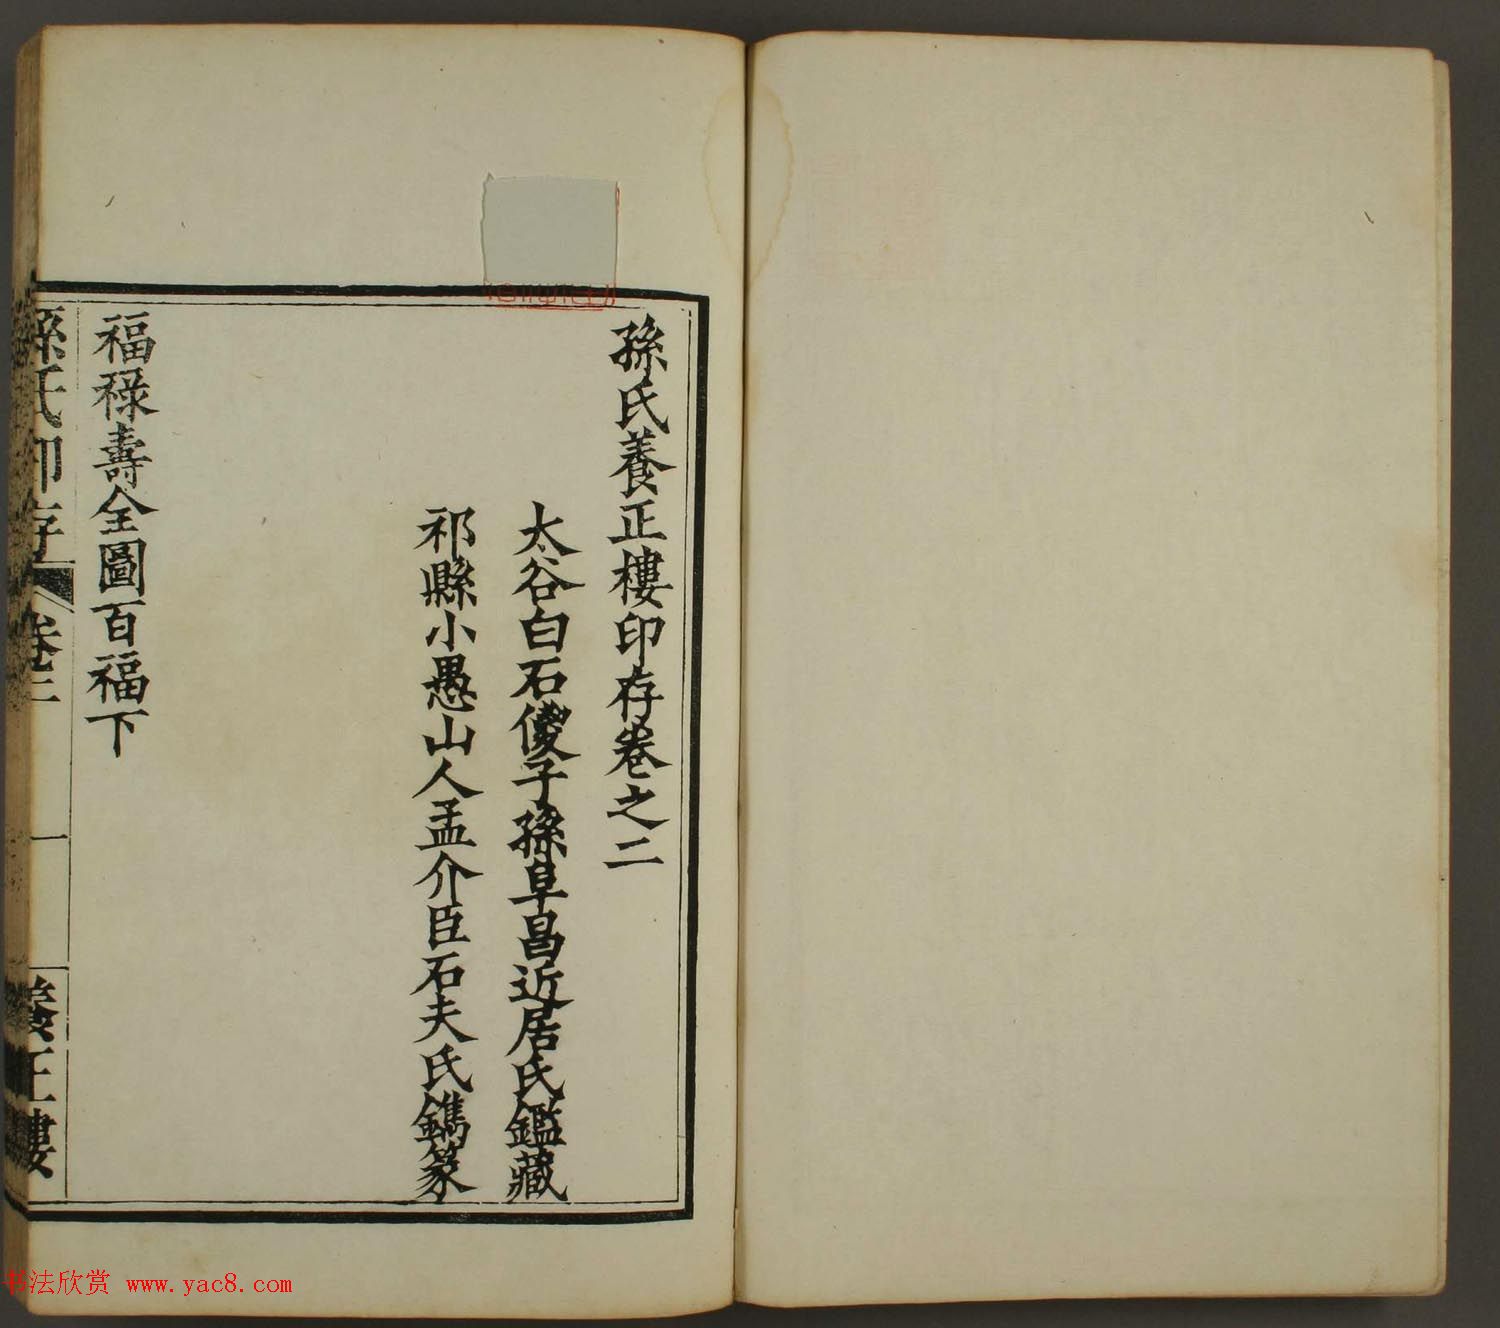 孫氏養正樓印存卷之二
太谷白石傻子孫阜昌近居氏鑑藏
祁縣小愚山人孟介臣石夫氏鐫篆
福祿壽全圖百福下
孫氏印存
卷二
一
養正樓
书法欣赏 www.yac8.com